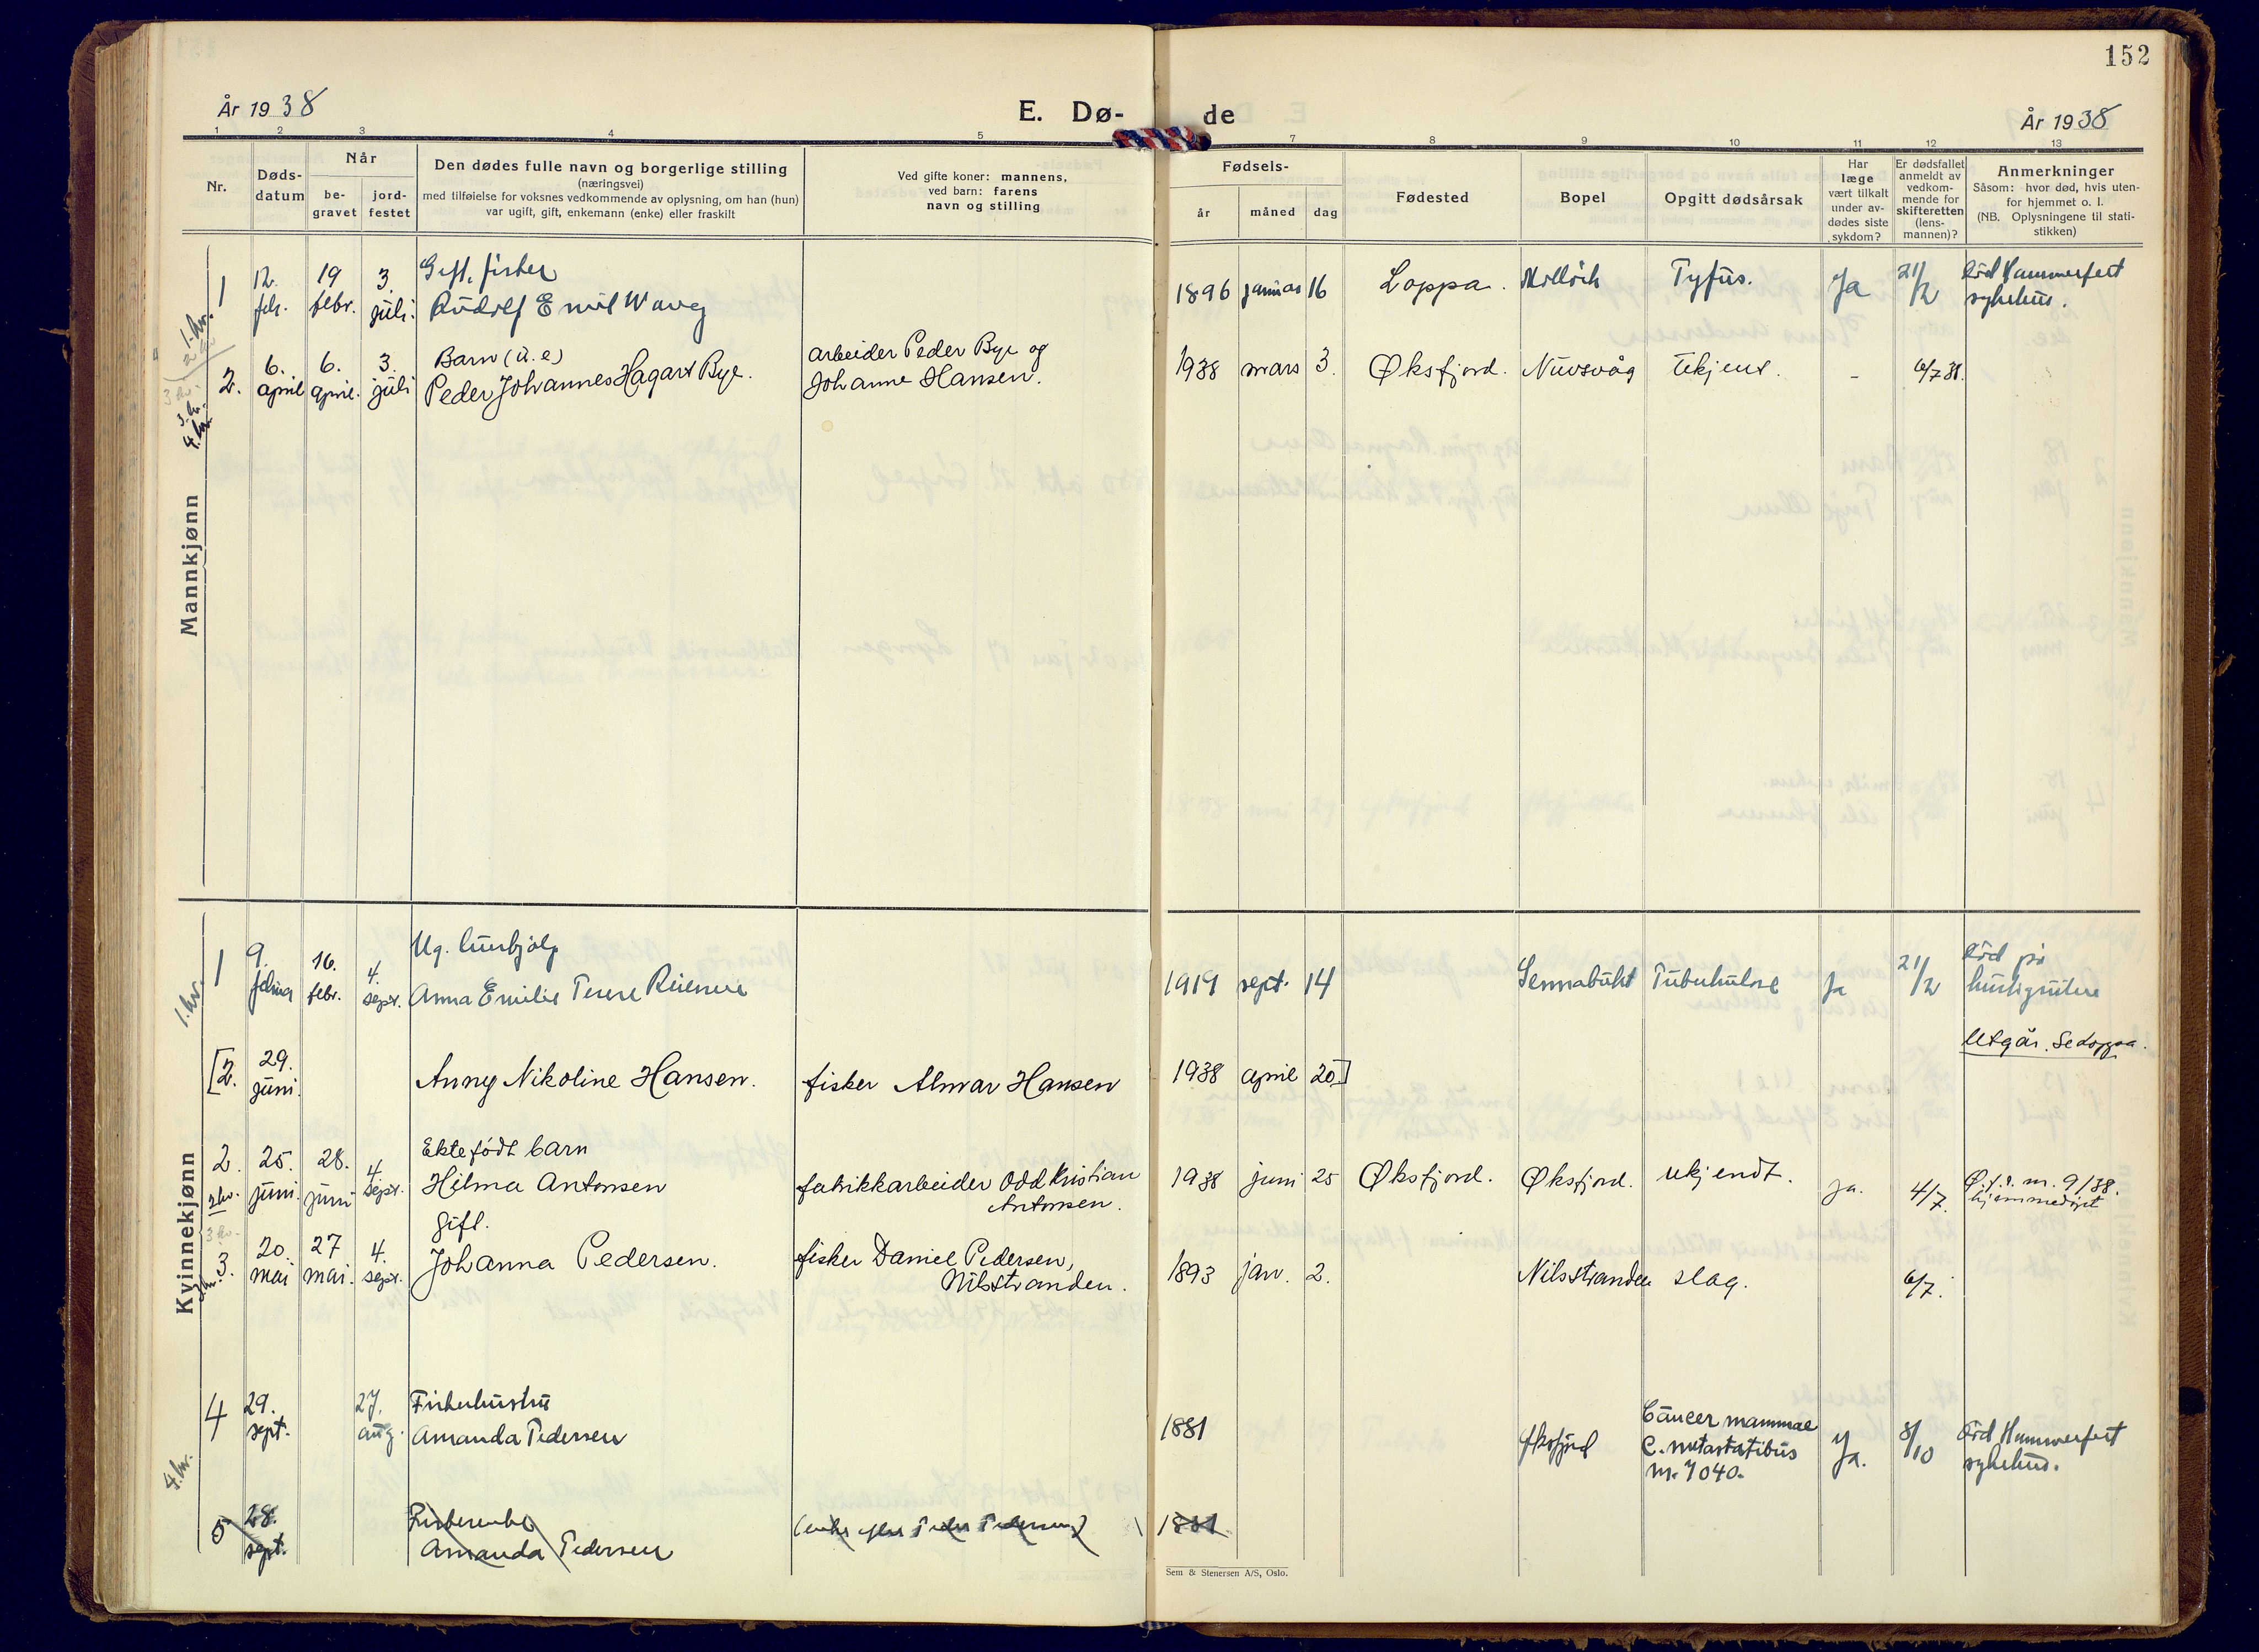 152
År 1938
E. Dø-
de
År 1938
1 2 3 4 5 7 8 9 10 11 12 13
Nr.
Døds-
datum
Når
be-
gravet
jord-
festet
Den dødes fulle navn og borgerlige stilling
(næringsvei)
med tilføielse for voksnes vedkommende av oplysning, om han (hun)
var ugift, gift, enkemann (enke) eller fraskilt
Ved gifte koner: mannens,
ved barn: farens
navn og stilling
Fødsels-
år
måned
dag
Fødested
Bopel
Opgitt dødsårsak
Har
læge
vært tilkalt
under av-
dødes siste
sykdom?
Er dødsfallet
anmeldt av
vedkom-
mende for
skifteretten
(lens-
mannen)?
Anmerkninger
Såsom: hvor død, hvis uten-
for hjemmet o. l.
(NB. Oplysningene til stati-
stikken)
Mannkjønn
1 12. febr. 19 febr. 3. juli. Gift, fisker
Rudolf Emil Waag
1896 januar 16 Loppa. Tyfus. Ja 21/2 Død Hammerfest
sykehus.
1.kv.
2.kv.
3.kv.
4.kv.
2. 6. april 6. april. 3. juli Barn (u.e)
Peder Johannes Hagart Bye.
arbeider Peder Bye og
Johanne Hansen.
1938 mars 3. Øksfjord. Nuvsvåg Ukjent. - 6/7 38.
Kvinnekjønn
1.kv.
1 9. februar 16. febr. 4. sept. Ug. hushjelp
Anna Emilie Terese
1919 sept. 14 Sennabukt Tuberkulose Ja 21/2 Død på
hurtigruten
[2. 29. juni. Anny Nikoline Hansen. fisker Almar Hansen 1938 april 20] Utgår. Se Loppa.
2. 25. juni. 28. juni 4. sept. Ektefødt barn
Hilma Antonsen
fabrikkarbeider Odd Kristian
Antonsen.
1938 juni 25 Øksfjord. Øksfjord. ukjendt. ja. 4/7. Ø.f.r. nr. 9/38.
hjemmedøpt
2kv.
3kv.
3. 20. mai 27 mai. 4. sept. Gift.
Johanna Pedersen.
fisker Daniel Pedersen,
Nilsstranden.
1893 jan. 2. Nilsstranden slag. 6/7.
4 29. sept. 27. aug. Fiskerhustru
Amanda Pedersen
1881 Øksfjord Cancer mammae
c. metastatibus
nr. 7040. Ja. 8/10 Død Hammerfest
sykehus.
4.kv.
5 28. sept. Fiskerenke
Amanda Pedersen
(enke efter Peder Pedersen)
1881
Sem & Stenersen A/S, Oslo.